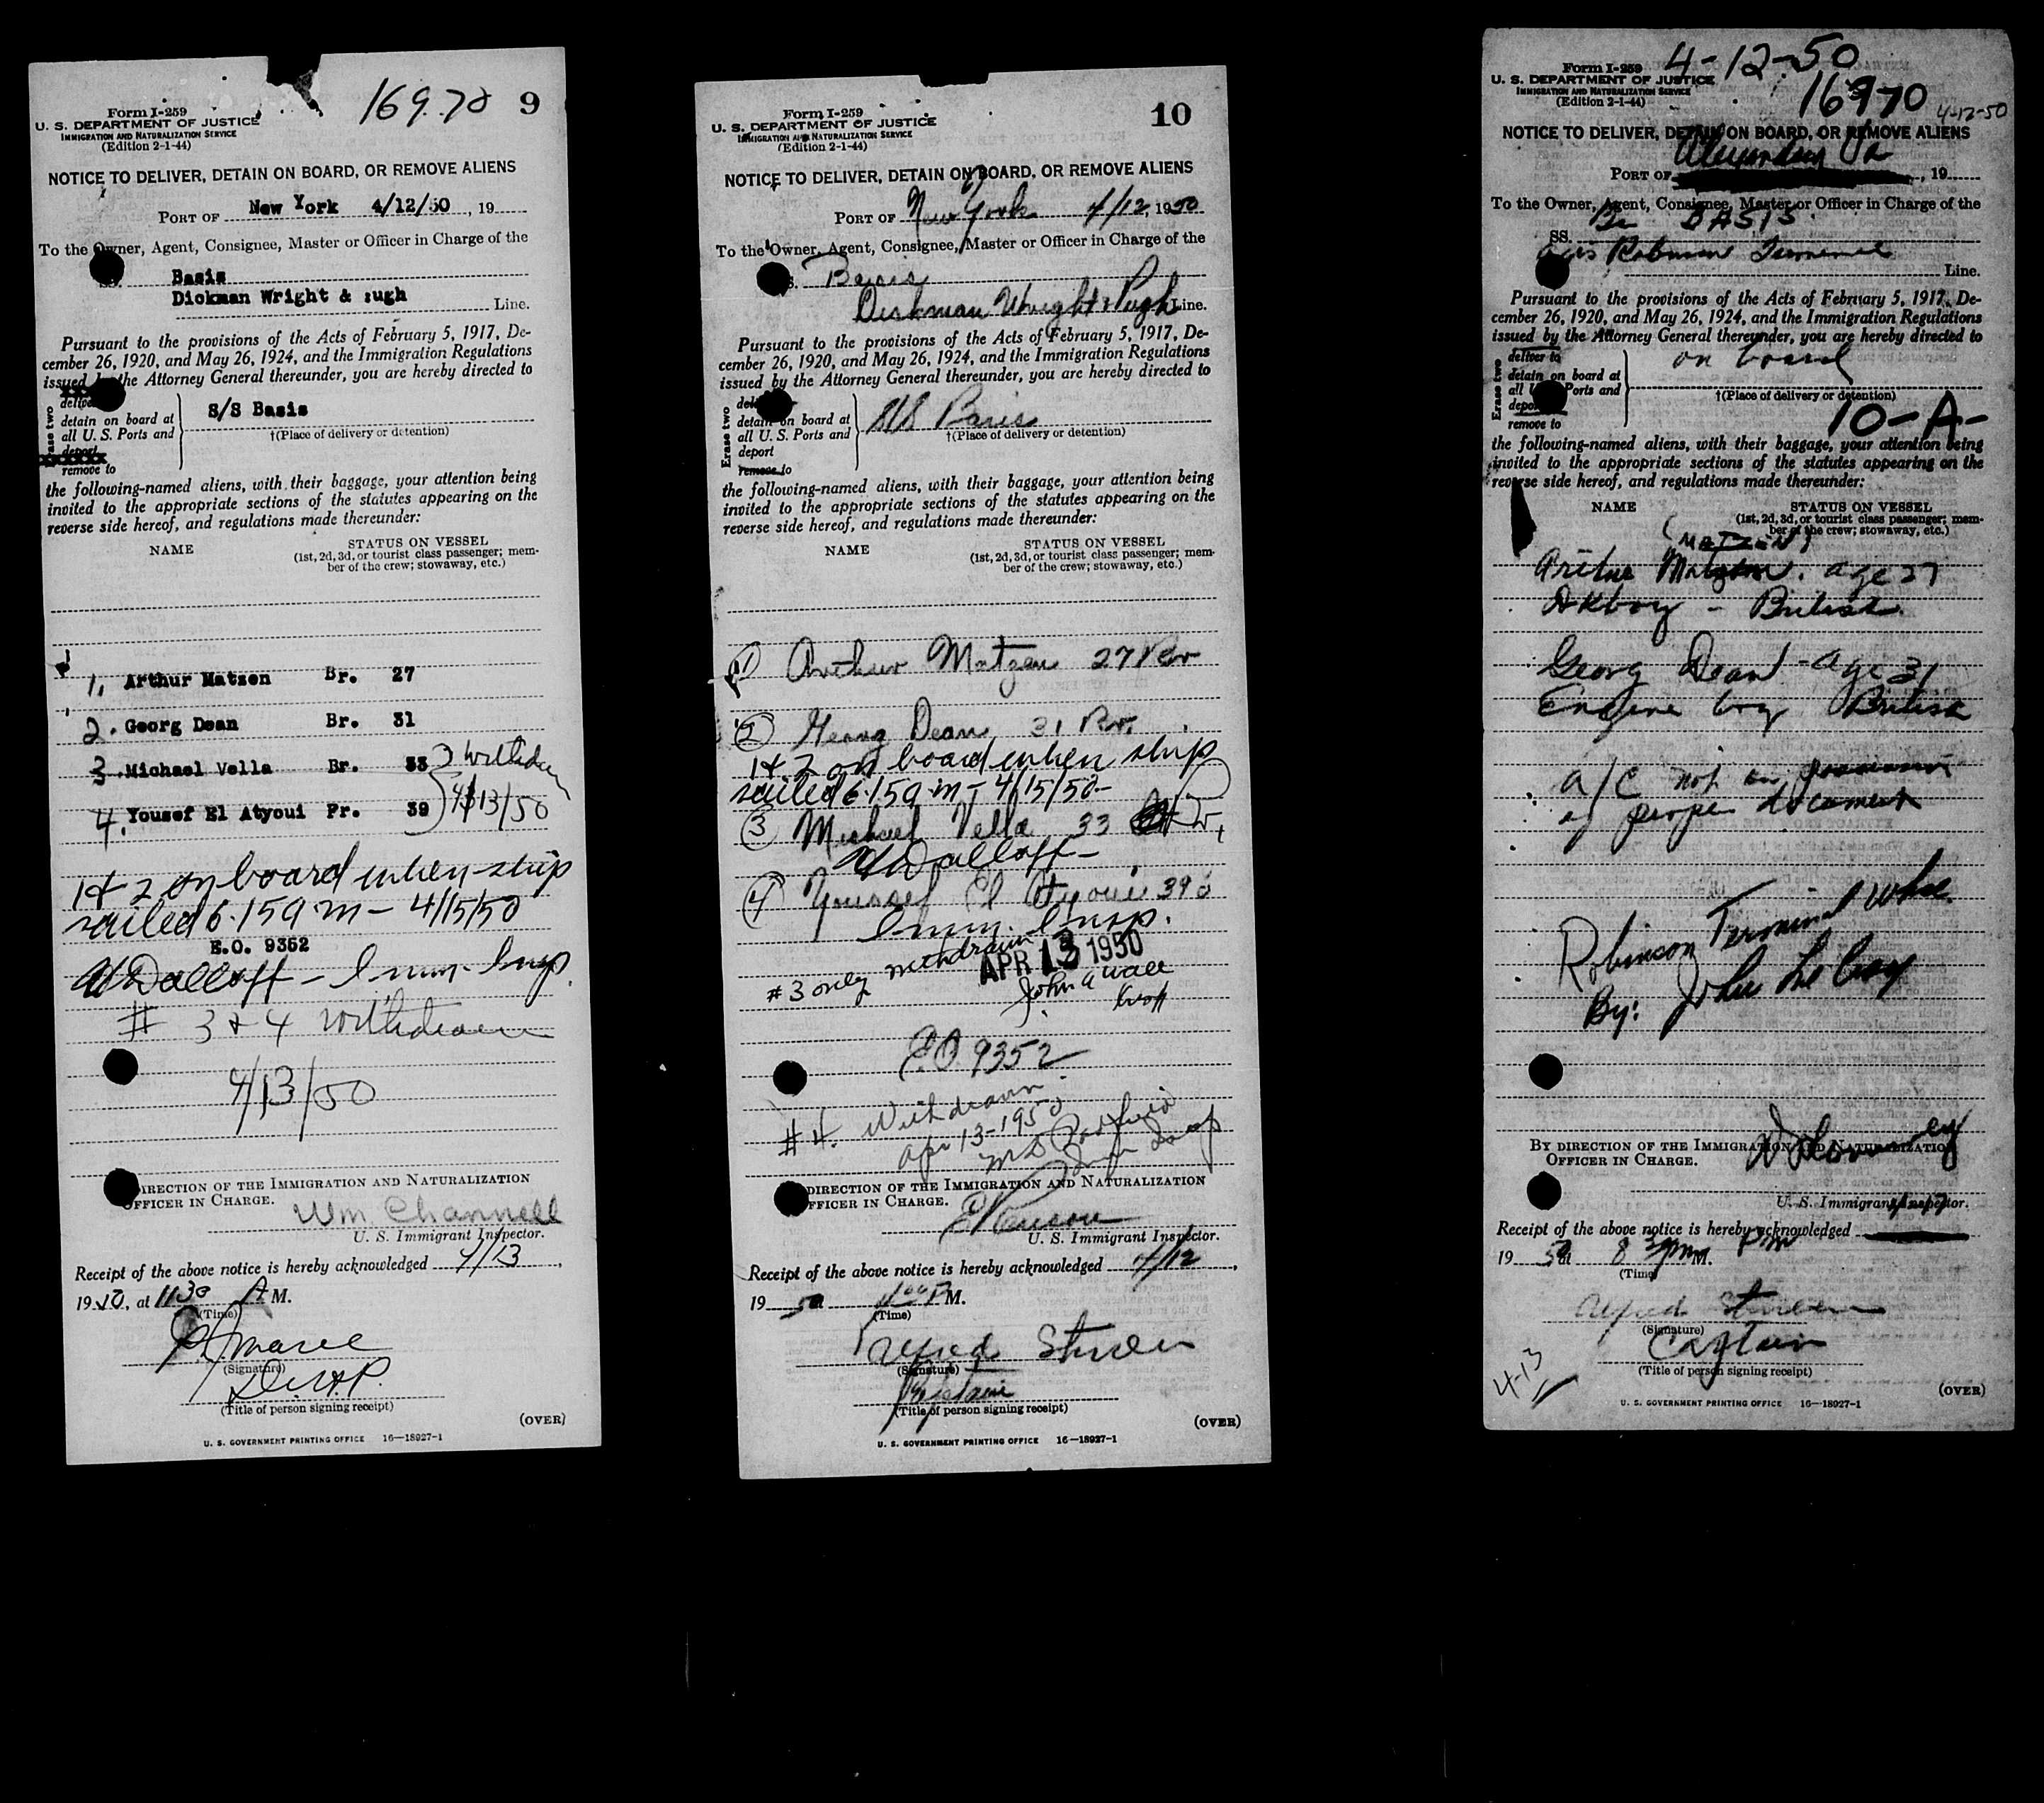 169.70 9
Form I-259
U. S. DEPARTMENT OF JUSTICE
IMMIGRATION AND NATURALIZATION SERVICE
(Edition 2-1-44)
NOTICE TO DELIVER, DETAIN ON BOARD, OR REMOVE ALIENS
PORT OF New York 4/12/50, 19
To the Owner, Agent, Consignee, Master or Officer in Charge of the
Basis
Dickman Wright & Pugh Line.
Pursuant to the provisions of the Acts of February 5, 1917, De-
cember 26, 1920, and May 26, 1924, and the Immigration Regulations
issued by the Attorney General thereunder, you are hereby directed to
Erase two
detain on board at
all U. S. Ports and
deport
remove to
S/S Basis
†(Place of delivery or detention)
the following-named aliens, with their baggage, your attention being
invited to the appropriate sections of the statutes appearing on the
reverse side hereof, and regulations made thereunder:
NAME STATUS ON VESSEL
(1st, 2d, 3d, or tourist class passenger; mem-
ber of the crew; stowaway, etc.)
1. Arthur Matzen Br. 27
2. Georg Dean Br. 31
3. Michael Vella Br. 33
4. Yousef El Atyoui Fr. 39
withdrawn
4/13/50
1 & 2 on board when ship
sailed 6.15 a.m - 4/15/50
E.O. 9352
Dalloff - Imm. Insp.
# 3 & 4 withdrawn
4/13/50
DIRECTION OF THE IMMIGRATION AND NATURALIZATION
OFFICER IN CHARGE.
Wm. Channell
U. S. Immigrant Inspector.
Receipt of the above notice is hereby acknowledged 4/13,
1950, at 1130 A M.
(Time)
(Signature)
D.W.P.
(Title of person signing receipt)
(OVER)
U. S. GOVERNMENT PRINTING OFFICE 16—18927-1
10
Form I-259
U. S. DEPARTMENT OF JUSTICE
IMMIGRATION AND NATURALIZATION SERVICE
(Edition 2-1-44)
NOTICE TO DELIVER, DETAIN ON BOARD, OR REMOVE ALIENS
PORT OF New York 4/12, 1950
To the Owner, Agent, Consignee, Master or Officer in Charge of the
Basis
Dickman Wright & Pugh Line.
Pursuant to the provisions of the Acts of February 5, 1917, De-
cember 26, 1920, and May 26, 1924, and the Immigration Regulations
issued by the Attorney General thereunder, you are hereby directed to
Erase two
detain on board at
all U. S. Ports and
deport
remove to
S/S Basis
†(Place of delivery or detention)
the following-named aliens, with their baggage, your attention being
invited to the appropriate sections of the statutes appearing on the
reverse side hereof, and regulations made thereunder:
NAME STATUS ON VESSEL
(1st, 2d, 3d, or tourist class passenger; mem-
ber of the crew; stowaway, etc.)
1) Arthur Matzen 27 Br
2) Georg Dean 31 Br.
1 & 2 on board when ship
sailed 6.15 a.m - 4/15/50-
3 Michael Vella 33
Dalloff-
4 Youssef El Atyoui 39
Imm. Insp.
# 3 only withdrawn
APR 13 1950
John A Wall
E.O. 9352
# 4. Withdrawn
Apr 13-1950
DIRECTION OF THE IMMIGRATION AND NATURALIZATION
OFFICER IN CHARGE.
U. S. Immigrant Inspector.
Receipt of the above notice is hereby acknowledged 4/12,
19 50 P M.
(Time)
Alfred
(Signature)
Captain
(Title of person signing receipt)
(OVER)
U. S. GOVERNMENT PRINTING OFFICE 16—18927-1
4-12-50
16970
4-12-50
Form I-259
U. S. DEPARTMENT OF JUSTICE
IMMIGRATION AND NATURALIZATION SERVICE
(Edition 2-1-44)
NOTICE TO DELIVER, DETAIN ON BOARD, OR REMOVE ALIENS
Alexandria Va
PORT OF , 19
To the Owner, Agent, Consignee, Master or Officer in Charge of the
SS. Br BASIS
Robinson Terminal
Line.
Pursuant to the provisions of the Acts of February 5, 1917, De-
cember 26, 1920, and May 26, 1924, and the Immigration Regulations
issued by the Attorney General thereunder, you are hereby directed to
Erase two
deliver to
detain on board at
all U S Ports and
deport
remove to
on board
†(Place of delivery or detention)
10-A-
the following-named aliens, with their baggage, your attention being
invited to the appropriate sections of the statutes appearing on the
reverse side hereof, and regulations made thereunder:
NAME STATUS ON VESSEL
(1st, 2d, 3d, or tourist class passenger; mem-
ber of the crew; stowaway, etc.)
(MATZEN)
Arthur Matzen. age 27
Dkboy - British.
Georg Dean - age 31
Engine boy British
a/c not in possession
of proper document
Robinson Terminal Whse.
By:
BY DIRECTION OF THE IMMIGRATION AND NATURALIZATION
OFFICER IN CHARGE.
U. S. Immigrant Inspector.
Receipt of the above notice is hereby acknowledged
19 50 at 8 PM M.
(Time)
Alfred
(Signature)
Captain
(Title of person signing receipt)
4-13
(OVER)
U. S. GOVERNMENT PRINTING OFFICE 16—18927-1